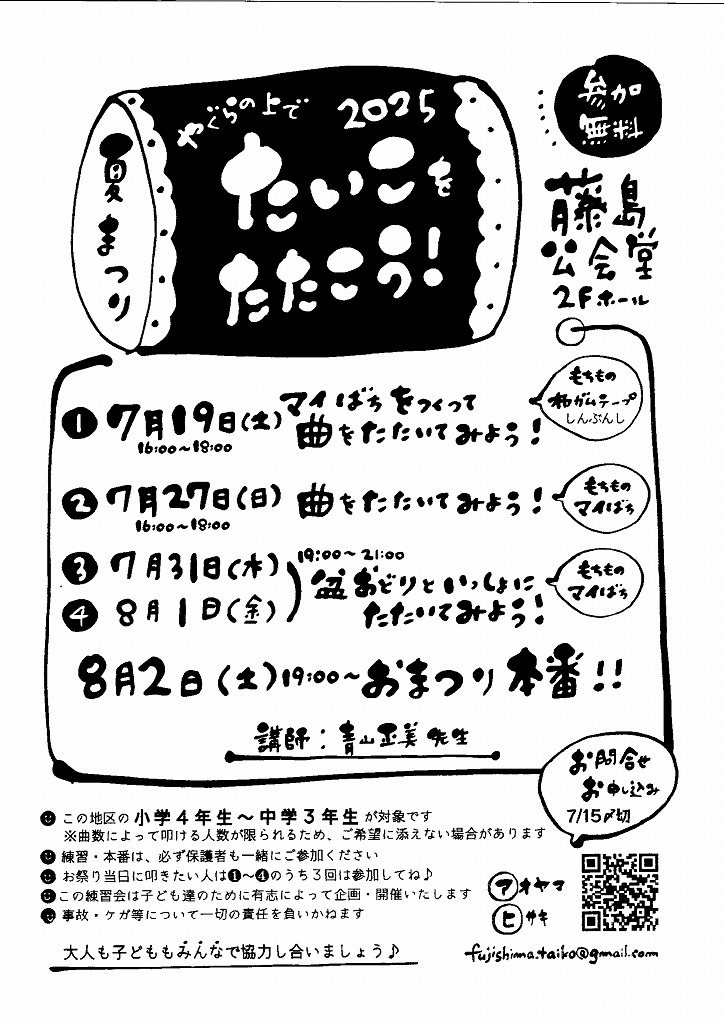 夏まつり
やぐらの上で 2025
たいこを
たたこう!
参加
無料
藤島
公会堂
2Fホール
❶ 7月19日(土) マイばちをつくって
16:00~18:00 曲をたたいてみよう!
もちもの
布ガムテープ
しんぶんし
❷ 7月27日(日) 曲をたたいてみよう!
16:00~18:00
もちもの
マイばち
❸ 7月31日(木)
❹ 8月1日(金)
19:00~21:00
盆おどりといっしょに
たたいてみよう!
もちもの
マイばち
8月2日(土)19:00~おまつり本番!!
講師:青山正美先生
お問合せ
お申し込み
7/15〆切
この地区の小学4年生~中学3年生が対象です
※曲数によって叩ける人数が限られるため、ご希望に添えない場合があります
練習・本番は、必ず保護者も一緒にご参加ください
お祭り当日に叩きたい人は❶~❹のうち3回は参加してね♪
この練習会は子ども達のために有志によって企画・開催いたします
事故・ケガ等について一切の責任を負いかねます
大人も子どももみんなで協力し合いましょう♪
アオヤマ
ヒサキ
fujishima.taiko@gmail.com